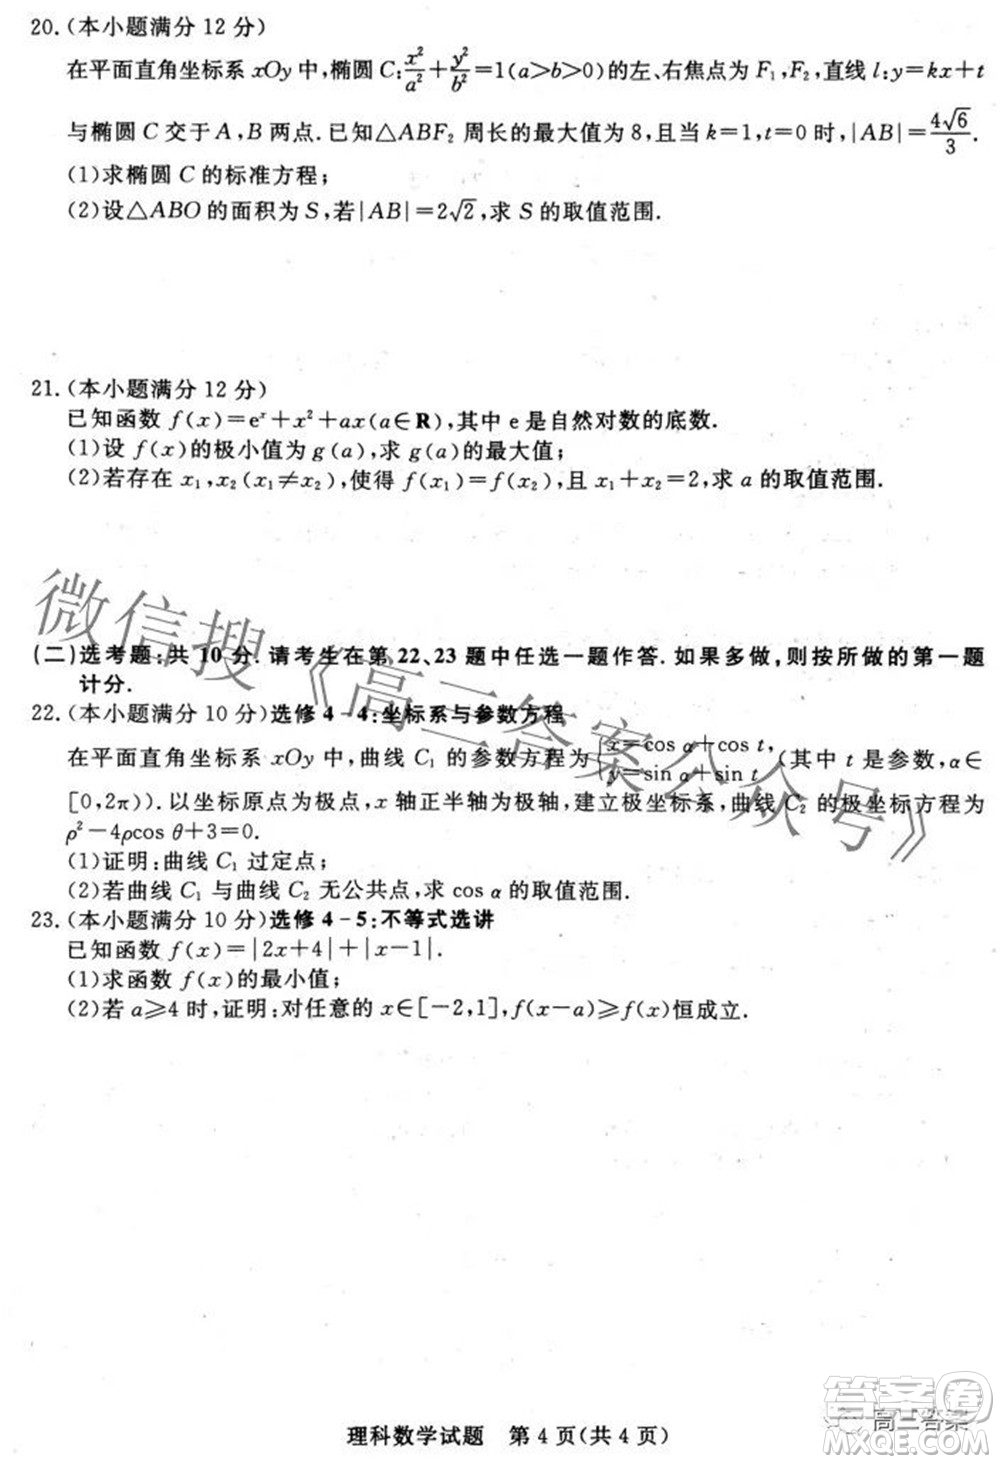 20.(本小题满分 12 分)
在平面直角坐标系 xOy 中,椭圆 C:x²/a²+y²/b²=1(a>b>0)的左、右焦点为 F₁,F₂,直线 l:y=kx+t
与椭圆 C 交于 A,B 两点.已知△ABF₂ 周长的最大值为 8,且当 k=1,t=0 时,|AB|=4√6/3.
(1)求椭圆 C 的标准方程;
(2)设△ABO 的面积为 S,若|AB|=2√2,求 S 的取值范围.
21.(本小题满分 12 分)
已知函数 f(x)=eˣ+x²+ax(a∈R),其中 e 是自然对数的底数.
(1)设 f(x)的极小值为 g(a),求 g(a)的最大值;
(2)若存在 x₁,x₂(x₁≠x₂),使得 f(x₁)=f(x₂),且 x₁+x₂=2,求 a 的取值范围.
微信搜《高三答案公众号》
(二)选考题:共 10 分.请考生在第 22、23 题中任选一题作答.如果多做,则按所做的第一题
计分.
22.(本小题满分 10 分)选修 4-4:坐标系与参数方程
在平面直角坐标系 xOy 中,曲线 C₁ 的参数方程为{x=cos α+cos t, y=sin α+sin t (其中 t 是参数,α∈
[0,2π)).以坐标原点为极点,x 轴正半轴为极轴,建立极坐标系,曲线 C₂ 的极坐标方程为
ρ²-4ρcos θ+3=0.
(1)证明:曲线 C₁ 过定点;
(2)若曲线 C₁ 与曲线 C₂ 无公共点,求 cos α 的取值范围.
23.(本小题满分 10 分)选修 4-5:不等式选讲
已知函数 f(x)=|2x+4|+|x-1|.
(1)求函数 f(x)的最小值;
(2)若 a≥4 时,证明:对任意的 x∈[-2,1],f(x-a)≥f(x)恒成立.
答案圈
高三答案
MXQE.COM
理科数学试题 第 4 页(共 4 页)